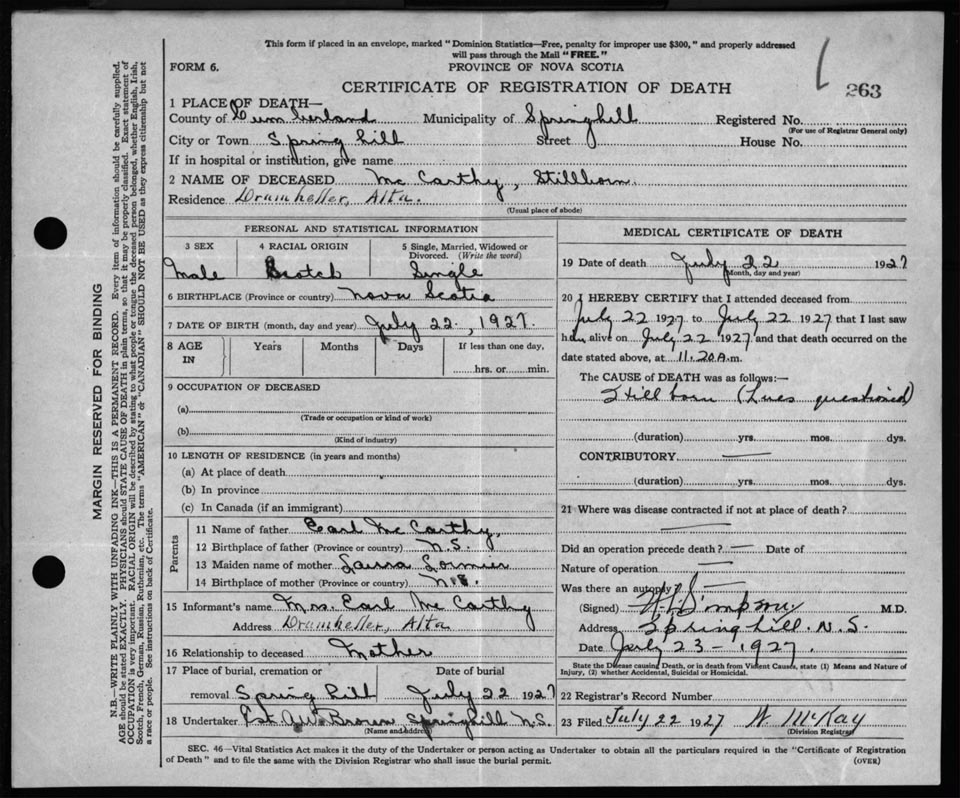 This form if placed in an envelope, marked "Dominion Statistics—Free, penalty for improper use $300," and properly addressed
will pass through the Mail "FREE."
FORM 6.
PROVINCE OF NOVA SCOTIA
CERTIFICATE OF REGISTRATION OF DEATH
263
1 PLACE OF DEATH—
County of Cumberland Municipality of Springhill Registered No.
(For use of Registrar General only)
City or Town Spring hill Street House No.
If in hospital or institution, give name
2 NAME OF DECEASED Mc Carthy, Stillborn.
Residence Drumheller, Alta.
(Usual place of abode)
PERSONAL AND STATISTICAL INFORMATION
3 SEX 4 RACIAL ORIGIN 5 Single, Married, Widowed or
Divorced. (Write the word)
Male Scotch Single
6 BIRTHPLACE (Province or country) Nova Scotia
7 DATE OF BIRTH (month, day and year) July 22, 1927.
8 AGE
IN
Years Months Days If less than one day,
hrs. or min.
9 OCCUPATION OF DECEASED
(a)
(Trade or occupation or kind of work)
(b)
(Kind of industry)
10 LENGTH OF RESIDENCE (in years and months)
(a) At place of death
(b) In province
(c) In Canada (if an immigrant)
Parents
11 Name of father Earl Mc Carthy
12 Birthplace of father (Province or country) N.S.
13 Maiden name of mother Laura
14 Birthplace of mother (Province or country) N.S.
15 Informant's name Mrs. Earl Mc Carthy
Address Drumheller, Alta
16 Relationship to deceased Mother
17 Place of burial, cremation or Date of burial
removal Spring Hill July 22 1927
18 Undertaker Brown, Springhill N.S.
(Name and address)
MEDICAL CERTIFICATE OF DEATH
19 Date of death July 22 1927
(Month, day and year)
20 I HEREBY CERTIFY that I attended deceased from
July 22 1927 to July 22 1927 that I last saw
h alive on July 22 1927 and that death occurred on the
date stated above, at 11.20 A.m.
The CAUSE of DEATH was as follows:—
Still born (Lues questioned)
(duration) yrs. mos. dys.
CONTRIBUTORY
(duration) yrs. mos. dys.
21 Where was disease contracted if not at place of death?
Did an operation precede death? — Date of
Nature of operation —
Was there an autopsy —
(Signed) Simpson M.D.
Address Spring hill. N.S.
Date July 23 - 1927.
State the Disease causing Death, or in death from Violent Causes, state (1) Means and Nature of
Injury, (2) whether Accidental, Suicidal or Homicidal.
22 Registrar's Record Number
23 Filed July 22 1927 W McKay
(Division Registrar)
SEC. 46—Vital Statistics Act makes it the duty of the Undertaker or person acting as Undertaker to obtain all the particulars required in the "Certificate of Registration
of Death" and to file the same with the Division Registrar who shall issue the burial permit.
(OVER)
MARGIN RESERVED FOR BINDING
N.B.—WRITE PLAINLY WITH UNFADING INK—THIS IS A PERMANENT RECORD. Every item of information should be carefully supplied.
AGE should be stated EXACTLY. PHYSICIANS should STATE CAUSE OF DEATH in plain terms, so that it may be properly classified. Exact statement of
OCCUPATION is very important. RACIAL ORIGIN will be described by stating to what people or tongue the deceased person belonged, whether English, Irish,
Scotch, French, German, Russian, Ruthenian, etc. The terms "AMERICAN" or "CANADIAN" SHOULD NOT BE USED as they express citizenship but not
a race or people. See instructions on back of Certificate.